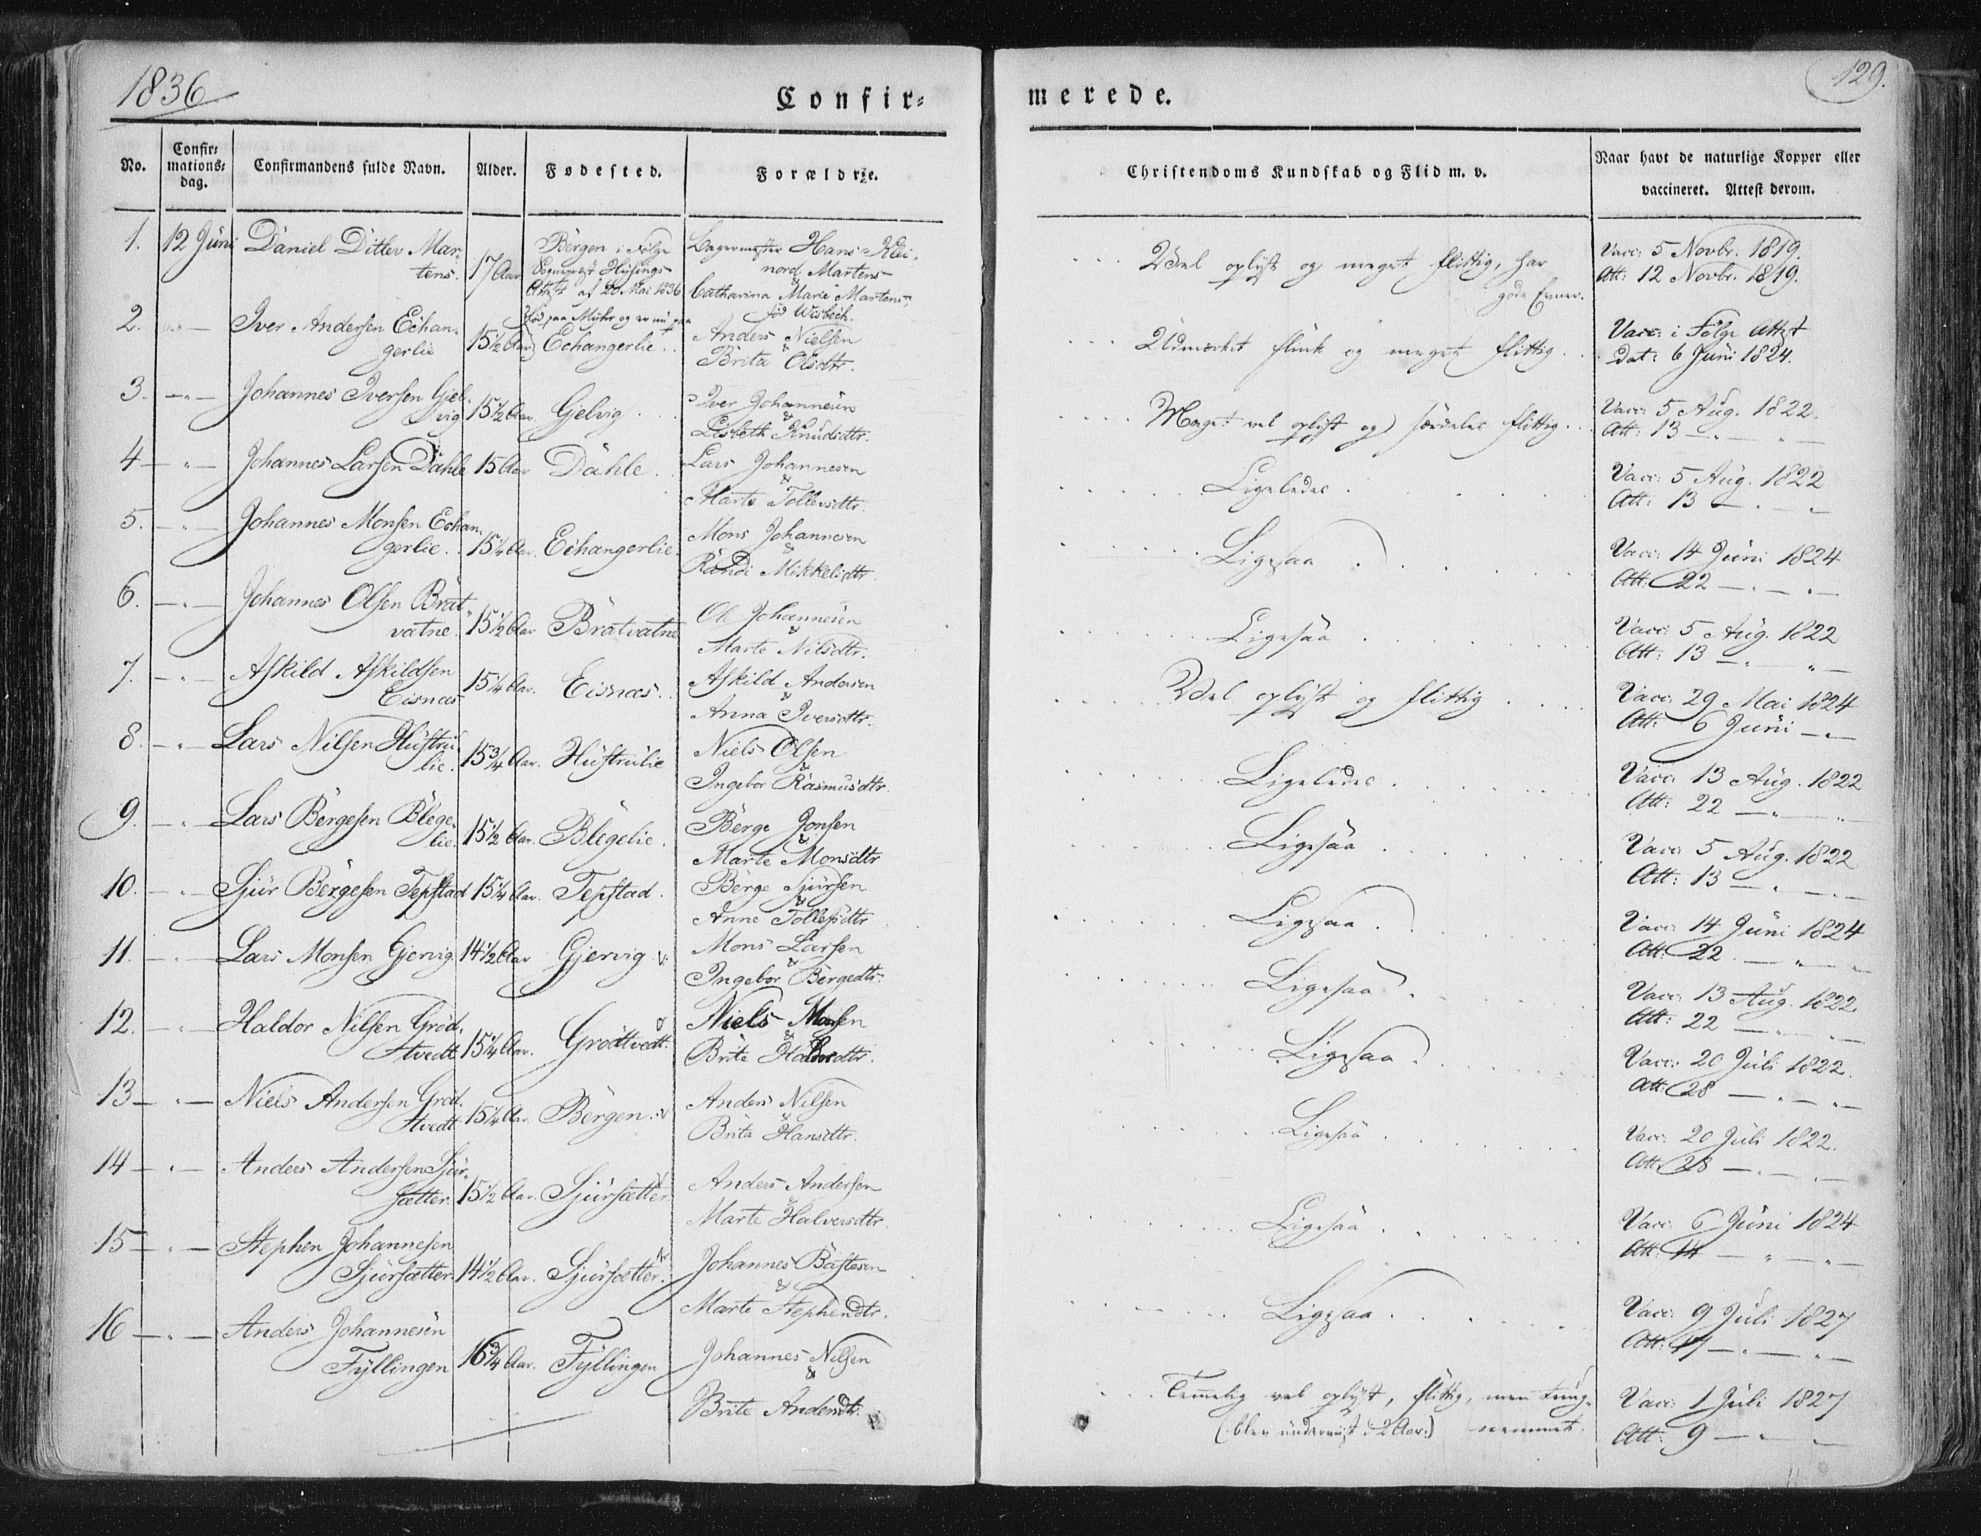 1836
Confir=
merede.
129.
No.
Confir= mations= dag.
Confirmandens fulde Navn.
Alder.
Fødested.
Forældre.
Christendoms Kundskab og Flid m. v.
Naar havt de naturlige Kopper eller
vaccineret. Attest derom.
1. 12 Juni Daniel Ditlev Mar- Bergen i Følge Lagermester Hans Klei-
tens. 17 Aar Sogneprest Hüsings nord Martens
Attest af 20 Mai 1836 Catharina Marie Martens
fød Wesbech.
Vel oplyst og meget flittig, har
gode Evner.
Vacc: 5 Novbr. 1819.
Att: 12 Novbr. 1819.
2. -"- Iver Andersen Echan- Fød paa Myhr og er nu paa
gerlie 15 1/2 Aar Echangerlie Anders Nielsen
&
Brita Olsdtr.
Udmærket flink og meget flittig
Vacc: i Følge Attest
dat: 6 Juni 1824.
3. -"- Johannes Iversen Gjel-
vig 15 1/2 Aar. Gelvig Iver Johannesen
&
Lisbeth Knudsdtr.
Meget vel oplyst og særdeles flittig
Vacc: 5 Aug. 1822.
Att: 13 -"-
4 -"- Johannes Larsen Dahle 15 Aar Dahle. Lars Johannesen
&
Marte Tollevsdtr.
Ligeledes
Vacc: 5 Aug. 1822
Att: 13 -"-
5. -"- Johannes Monsen Echan-
gerlie. 15 1/4 Aar. Echangerlie. Mons Johannesen
&
Randi Mikkelsdtr.
Ligesaa
Vacc: 14 Juni 1824
Att: 22 -"-
6. -"- Johannes Olsen Brat-
vatne. 15 1/2 Aar Bratvatne Ole Johannesen
&
Marte Nilsdtr.
Ligesaa
Vacc: 5 Aug. 1822
Att: 13 -"-
7. -"- Askild Askildsen
Eisnæs 15 1/4 Aar. Eisnæs. Askild Andersen
&
Anna Iversdtr.
Vel oplyst og flittig
Vacc: 29 Mai 1824
Att: 6 Juni -"-
8. -"- Lars Nilsen Hustru-
lie. 15 3/4 Aar. Hustrulie Niels Olsen
&
Ingebor Rasmusdtr.
Ligeledes
Vacc: 13 Aug. 1822
Att: 22 -"-
9. -"- Lars Børgesen Blege-
lie. 15 1/2 Aar. Blegelie. Børge Jonsen
&
Marte Monsdtr
Ligesaa
Vacc: 5 Aug. 1822
Att: 13 -"-
10. -"- Sjur Børgesen Tepstad 15 1/4 Aar. Tepstad. Børge Sjursen
&
Anne Tollefsdtr
Ligesaa
Vacc: 14 Juni 1824
Att: 22 -"-
11. -"- Lars Monsen Gjervig. 14 1/2 Aar Gjervig Mons Larsen
&
Ingebor Børgedtr.
Ligesaa
Vacc: 13 Aug. 1822
Att: 22 -"-
12. -"- Haldor Nilsen Grød-
tvedt 15 1/4 Aar. Grødtvedt. Niels Monsen
&
Brite Haldorsdtr.
Ligesaa
Vacc: 20 Juli 1822.
Att: 28 -"-
13 -"- Niels Andersen Grød-
tvedt 15 1/4 Aar. Bergen. Anders Nilsen
&
Brita Hansdtr.
Ligesaa
Vacc: 20 Juli 1822.
Att: 28 -"-
14 -"- Anders Andersen Sjur-
sætter. 15 1/2 Aar. Sjursætter. Anders Andersen
&
Marte Halversdtr.
Ligesaa
Vacc: 6 Juni 1824
Att: 14 -"-
15 -"- Stephen Johannesen
Sjursætter. 14 1/2 Aar. Sjursætter. Johannes Bastesen
&
Marte Stephendtr.
Ligesaa
Vacc: 9 Juli 1827
Att: 17 -"-
16 -"- Anders Johannesen
Fyllingen 16 3/4 Aar. Fyllingen Johannes Nilsen
&
Brite Andersdtr.
Temelig vel oplyst, flittig, men tung-
(blev underviist i 2 Aar.) nemmet.
Vacc: 1 Juli 1827
Att: 9 -"-